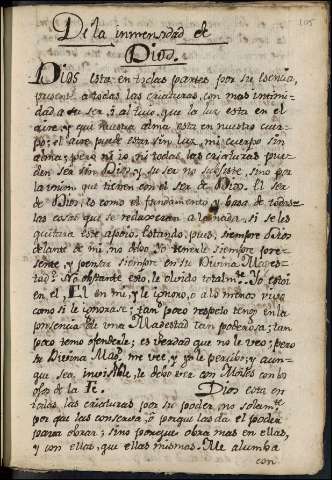 105
De la inmensidad de
Dios.
Dios esta en todas partes por su esencia,
presente a todas las criaturas, con mas intimi-
dad a su ser; al lujo, que la luz esta en el
aire, y que nuestra alma esta en nuestro cuer-
po; el aire puede estar sin luz, mi cuerpo sin
alma; pero ni io, ni todas las criaturas pue-
den ser sin Dios, y su ser no subsiste, sino por
la union que tienen con el ser de Dios. El ser
de Dios, es como el fundamento y basa de todas
las cosas que se reduxeran a la nada, si se les
quitara este apoio. Estando, pues, siempre Dios
delante de mi, no debo Yo tenerle siempre pre-
sente, y pensar siempre en su Divina Mages-
tad? No obstante esto, le olvido totalmte. Yo estoi
en el, El en mi, y le ignoro, o a lo menos vivo
como si le ignorase; tampoco respeto tengo en la
presencia de una Magestad tan poderosa; tam
poco temo ofenderle; es verdad que no le veo; pero
su Divina Mag. me vee, y yo le percibo; y aun-
que sea invisible, le debo ver con Moises con los
ojos de la Fe. Dios esta en
todas las criaturas por su poder, no solam.te
por que las conserva, o porque las da el poder
para obrar; sino porque obra mas en ellas,
y con ellas, que ellas mismas. Me alumba
con